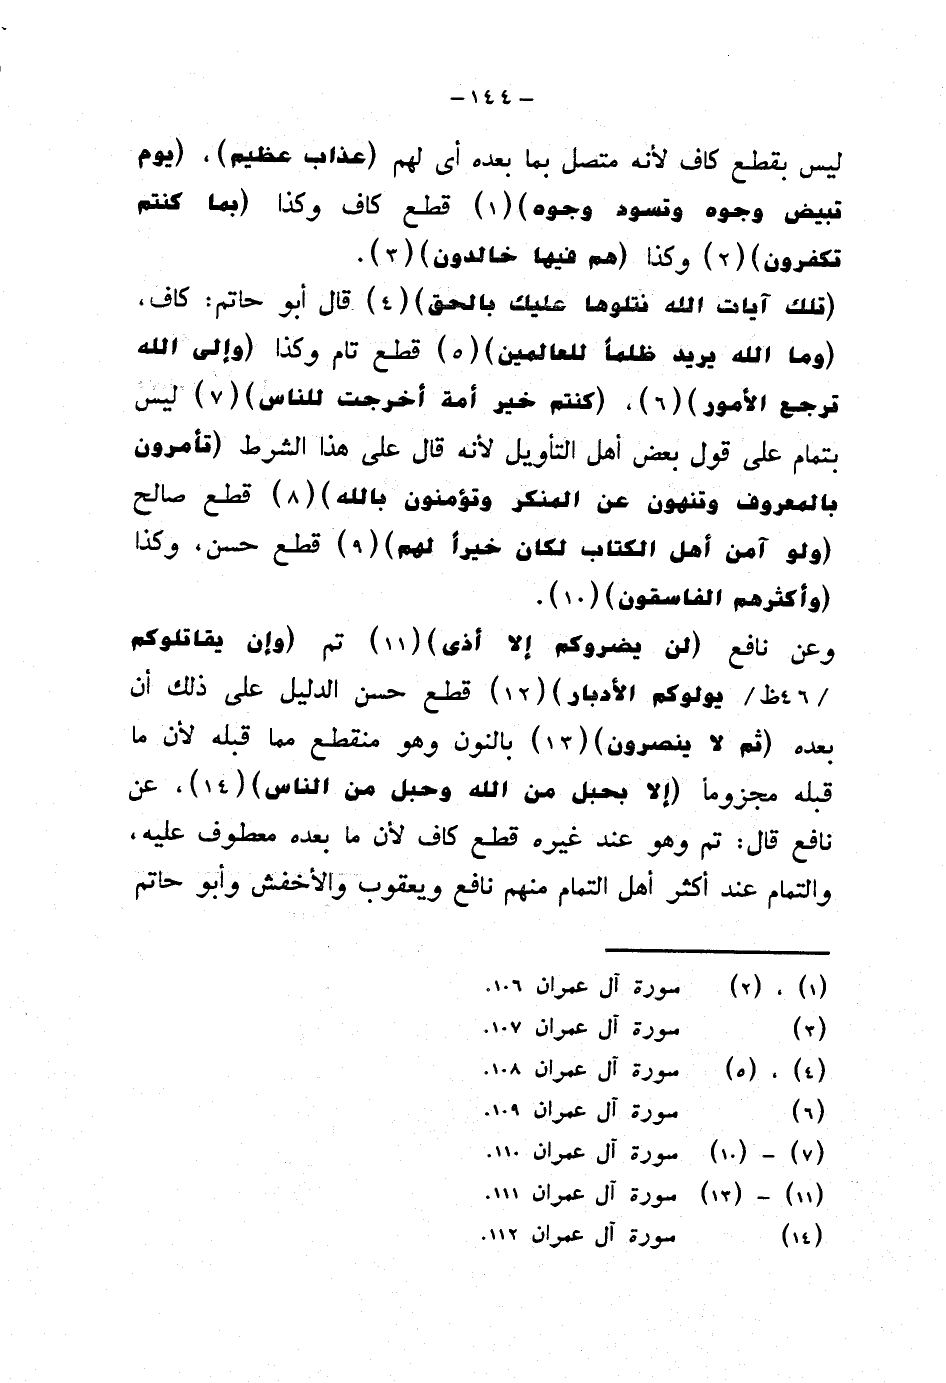 –١٤٤–
ليس بقطع كاف لأنه متصل بما بعده أى لهم (عذاب عظيم)، (يوم
تبيض وجوه وتسود وجوه)(١) قطع كاف وكذا (بما كنتم
تكفرون)(٢) وكذا (هم فيها خالدون)(٣).
(تلك آيات الله نتلوها عليك بالحق)(٤) قال أبو حاتم: كاف،
(وما الله يريد ظلماً للعالمين)(٥) قطع تام وكذا (وإلى الله
ترجع الأمور)(٦)، (كنتم خير أمة أخرجت للناس)(٧) ليس
بتمام على قول بعض أهل التأويل لأنه قال على هذا الشرط (تأمرون
بالمعروف وتنهون عن المنكر وتؤمنون بالله)(٨) قطع صالح
(ولو آمن أهل الكتاب لكان خيراً لهم)(٩) قطع حسن، وكذا
(وأكثرهم الفاسقون)(١٠).
وعن نافع (لن يضروكم إلا أذى)(١١) تم (وإن يقاتلوكم
/٤٦ظ/ يولوكم الأدبار)(١٢) قطع حسن الدليل على ذلك أن
بعده (ثم لا ينصرون)(١٣) بالنون وهو منقطع مما قبله لأن ما
قبله مجزوماً (إلا بحبل من الله وحبل من الناس)(١٤)، عن
نافع قال: تم وهو عند غيره قطع كاف لأن ما بعده معطوف عليه،
والتمام عند أكثر أهل التمام منهم نافع ويعقوب والأخفش وأبو حاتم
(١) ، (٢) سورة آل عمران ١٠٦.
(٣) سورة آل عمران ١٠٧.
(٤) ، (٥) سورة آل عمران ١٠٨.
(٦) سورة آل عمران ١٠٩.
(٧) – (١٠) سورة آل عمران ١١٠.
(١١) – (١٣) سورة آل عمران ١١١.
(١٤) سورة آل عمران ١١٢.